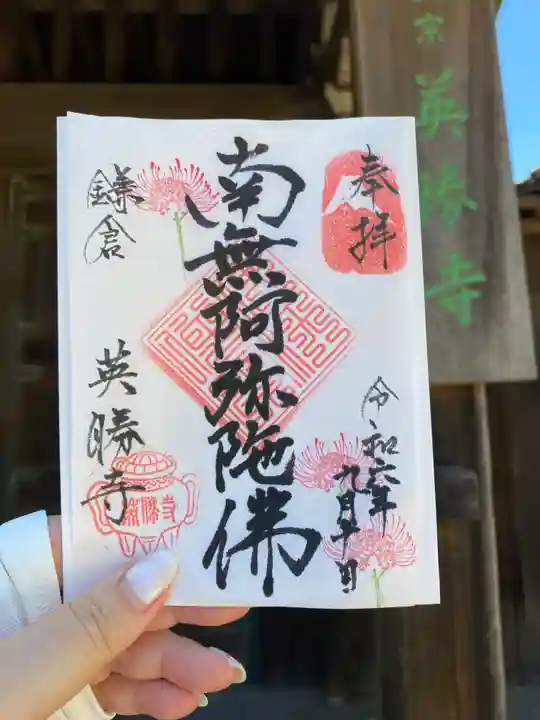 奉拝
令和六年
九月十一日
南無阿弥陀佛
鎌倉
英勝寺
英勝寺
宗
英勝寺